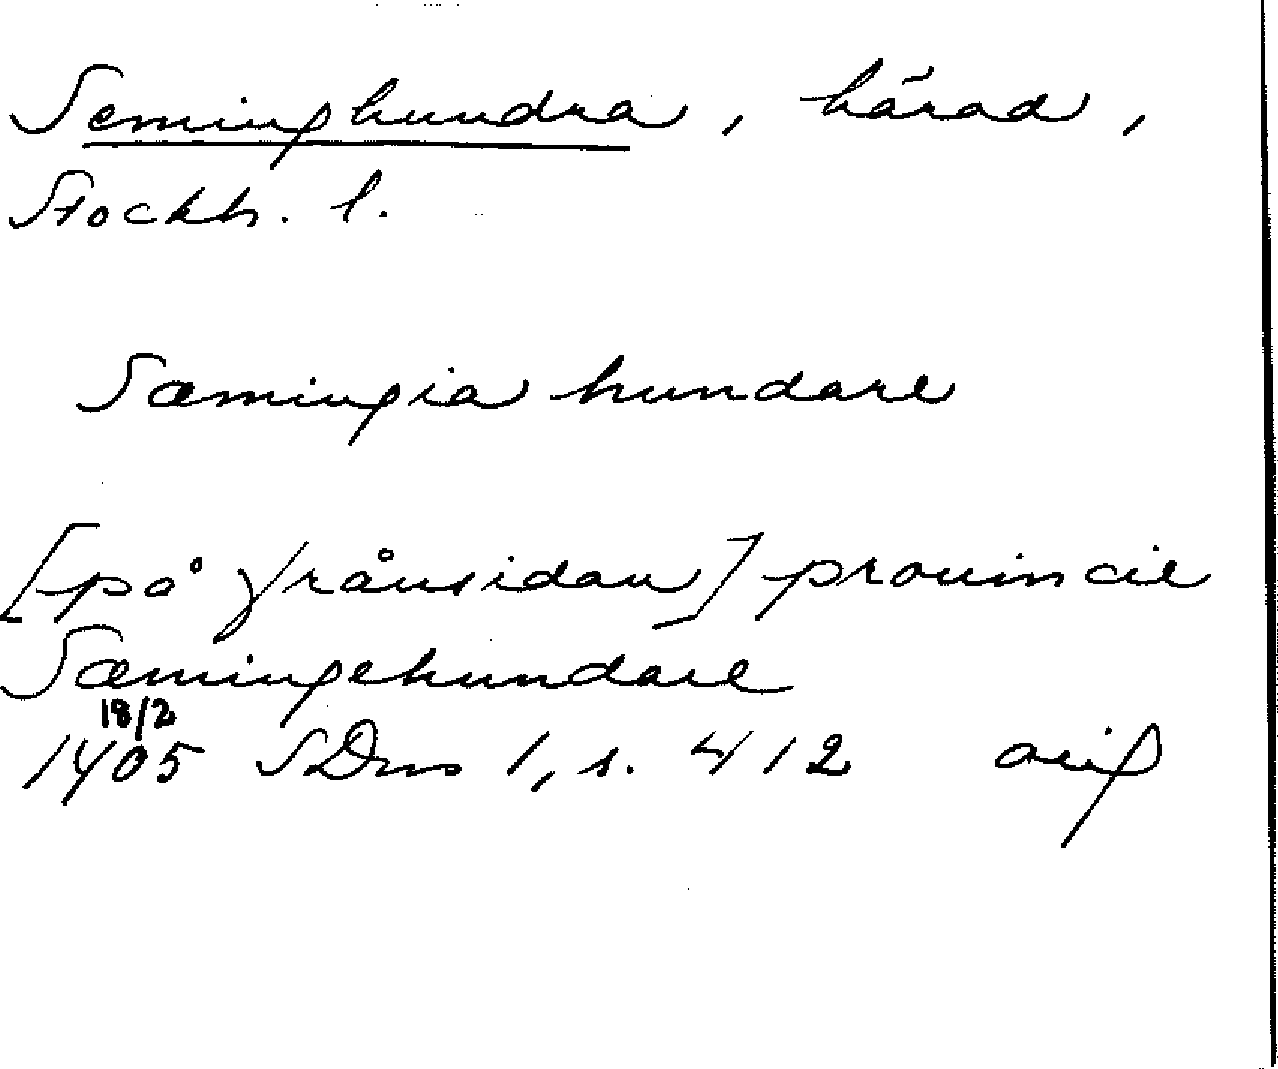 Seminghundra, härad,
Stockh. l.
Sæmingia hundare
[på frånsidan] prouincie
Sæmingehundare
18/2
1405 SDns 1, s. 412 orig